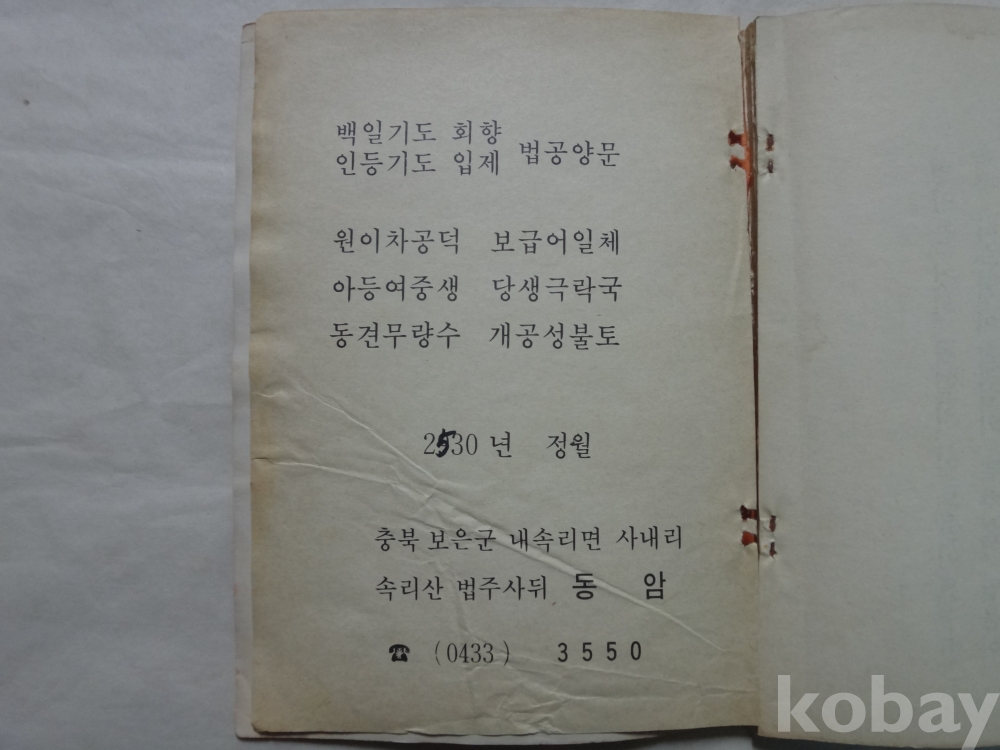 백일기도 회향
인등기도 입제 법공양문
원이차공덕 보급어일체
아등여중생 당생극락국
동견무량수 개공성불토
2530년 정월
충북 보은군 내속리면 사내리
속리산 법주사뒤 동 암
☎ (0433) 3550
kobay